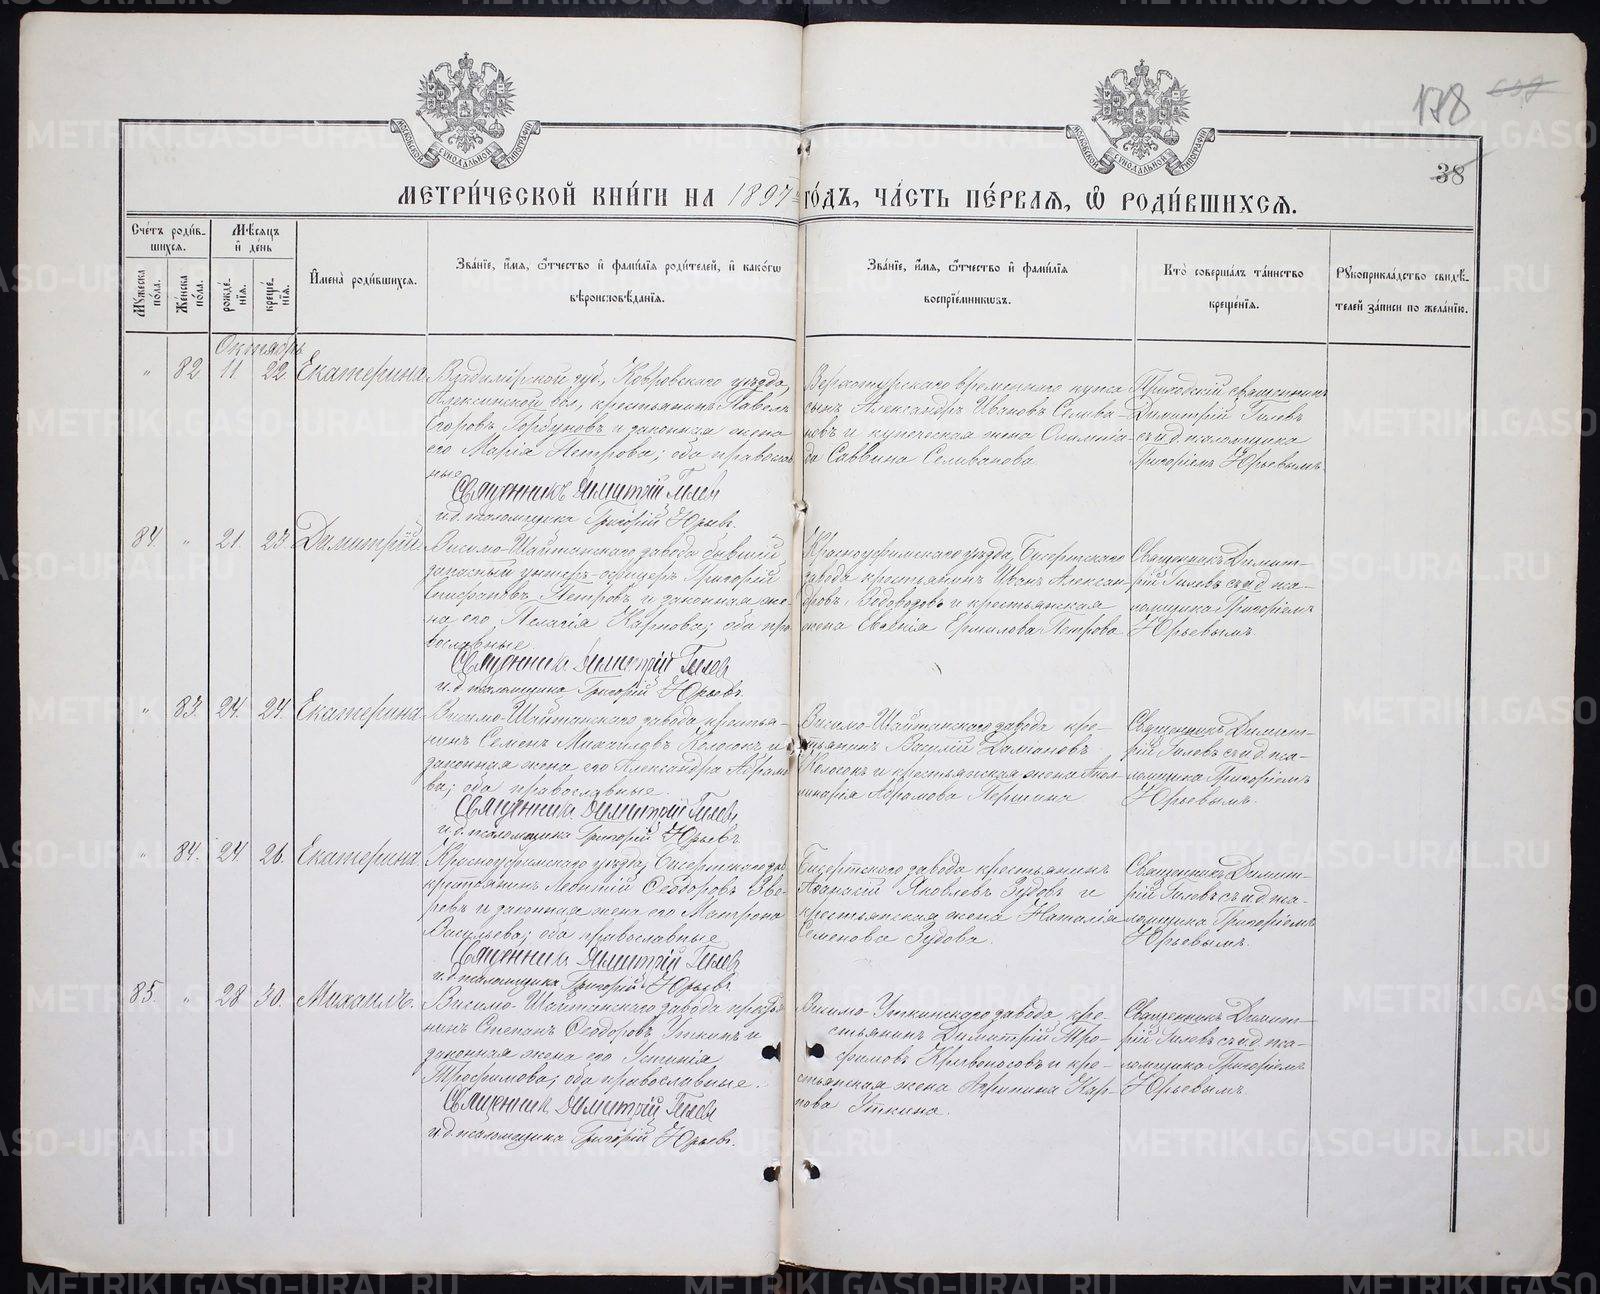 178
38
МЕТРИ́ЧЕСКОЙ КНИ́ГИ НА 1897 ГО́ДЪ, ЧА́СТЬ ПЕ́РВАЯ, Ѽ РОДИ́ВШИХСЯ.
Сче́тъ роди́в-
шихся.
Мѣ́сяцъ
и҆ де́нь
Мꙋ́жеска по́ла.
Же́нска по́ла.
рожде́нїя.
креще́нїя.
И҆мена̀ роди́вшихся.
Зва́нїе, и҆́мя, ѻ҆́тчество и҆ фамѝлїя роди́телей, и҆ како́гѡ
вѣроисповѣ́данїя.
Зва́нїе, и҆́мя, ѻ҆́тчество и҆ фами́лїя
воспрїе́мниковъ.
Кто̀ соверша́лъ та́инство
креще́нїя.
Рꙋкоприкла́дство свидѣ́-
телей за́писи по жела́нїю.
Октябрь
" 82 11 22. Екатерина
Владимірской губ., Ковровскаго уѣзда,
Алексинской вол., крестьянинъ Павелъ
Егоровъ Горбуновъ и законная жена
его Марія Петрова; оба православ
ные
Священникъ Димитрій Гилев
и.д. псаломщика Григорій Юрьевъ.
Верхотурскаго временнаго купца
сынъ Александръ Ивановъ Селива-
новъ и купеческая жена Олимпіа-
да Саввина Селиванова
Приходскій священникъ
Димитрій Гилевъ
съ и.д. псаломщика
Григоріемъ Юрьевымъ
84. " 21. 23. Димитрій
Висимо-Шайтанскаго завода бывшій
запасный унтеръ-офицеръ Григорій
Петровъ и законная же-
на его Пелагія Карпова; оба пра
вославные.
Священникъ Димитрій Гилев
и.д. псаломщика Григорій Юрьевъ.
Красноуфимскаго уѣзда, Бисертскаго
завода крестьянинъ Иванъ Алексан-
дровъ и крестьянская
жена Евгенія Ермилова Петрова
Священникъ Димит-
рій Гилевъ съ и.д. пса-
ломщика Григоріемъ
Юрьевымъ
" 83. 24. 24. Екатерина
Висимо-Шайтанскаго завода крестья-
нинъ Семенъ Михайловъ Колосокъ и
законная жена его Александра Абрамо
ва; оба православные.
Священникъ Димитрій Гилев
и.д. псаломщика Григорій Юрьевъ.
Висимо-Шайтанскаго завода кре-
стьянинъ Василій Даміановъ
Колосокъ и крестьянская жена Апол
линарія Абрамова Першина
Священникъ Димит-
рій Гилевъ съ и.д. пса-
ломщика Григоріемъ
Юрьевымъ.
" 84. 24. 26. Екатерина
Красноуфимскаго уѣзда, Бисертскаго за
крестьянинъ Леонтій Ѳеодоровъ Зве-
ревъ и законная жена его Матрона
Васильева; оба православные
Священникъ Димитрій Гилев
и.д. псаломщика Григорій Юрьевъ
Бисертскаго завода крестьянинъ
Аѳанасій Яковлевъ Зудовъ и
крестьянская жена Наталія
Семенова Зудова.
Священникъ Димит-
рій Гилевъ съ и.д. пса-
ломщика Григоріемъ
Юрьевымъ.
85. " 28 30. Михаилъ.
Висимо-Шайтанскаго завода крестья
нинъ Степанъ Ѳеодоровъ Уткинъ и
законная жена его Устинія
Трофимова; оба православные.
Священникъ Димитрій Гилев
и.д. псаломщика Григорій Юрьевъ.
Висимо-Уткинскаго завода кре-
стьянинъ Димитрій Тро-
фимовъ Кривоносовъ и кре-
стьянская жена Агрипина Кар-
пова Уткина.
Священникъ Димит-
рій Гилевъ съ и.д. пса-
ломщика Григоріемъ
Юрьевымъ.
METRIKI.GASO-URAL.RU